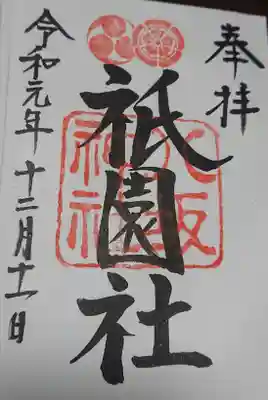 奉拝
八坂神社
祇園社
令和元年十二月十一日